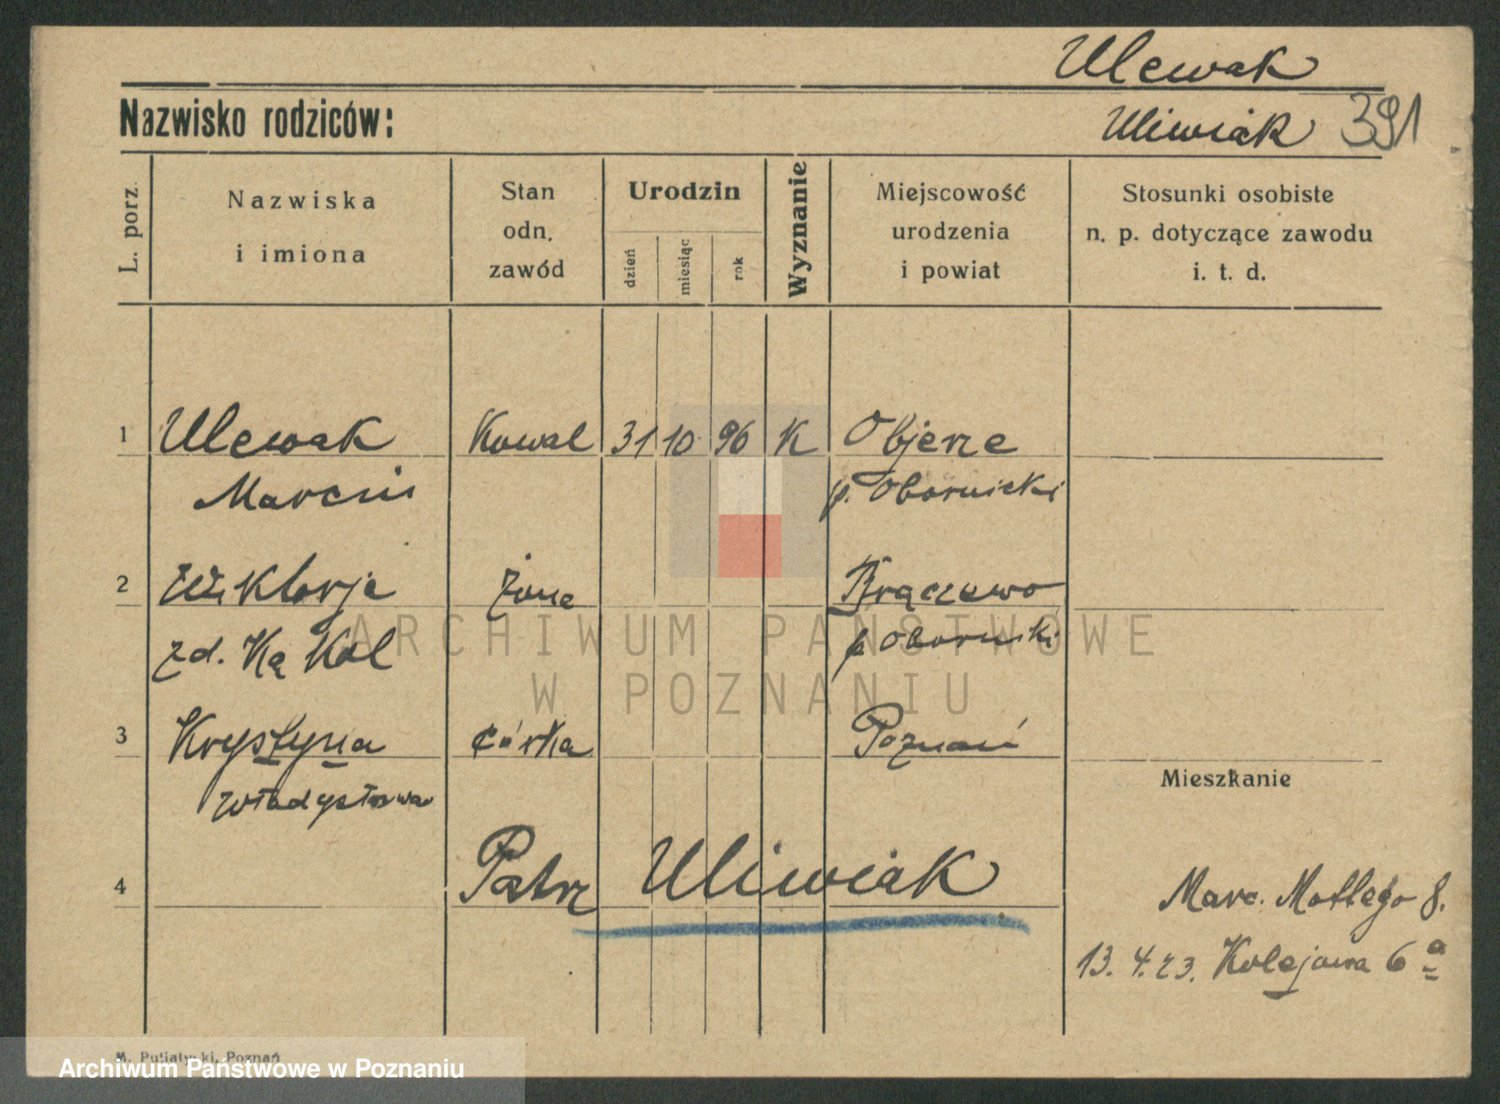 Ulewak
Nazwisko rodziców:
Uliwiak 391
L. porz.
Nazwiska
i imiona
Stan
odn.
zawód
Urodzin
dzień
miesiąc
rok
Wyznanie
Miejscowość
urodzenia
i powiat
Stosunki osobiste
n. p. dotyczące zawodu
i. t. d.
1 Ulewak Kowal 31 10 96 K Objerze
Marcin p. Obornicki
2 Wiktorja żona Brączewo
zd. Kąkol p. Obornicki
ARCHIWUM PAŃSTWOWE
W POZNANIU
3 Krystyna córka Poznań
Władysława
Mieszkanie
4 Patrz Uliwiak
Marc. Mottego 8.
13. 4. 23. Kolejowa 6 a
M. Putiatycki, Poznań
Archiwum Państwowe w Poznaniu